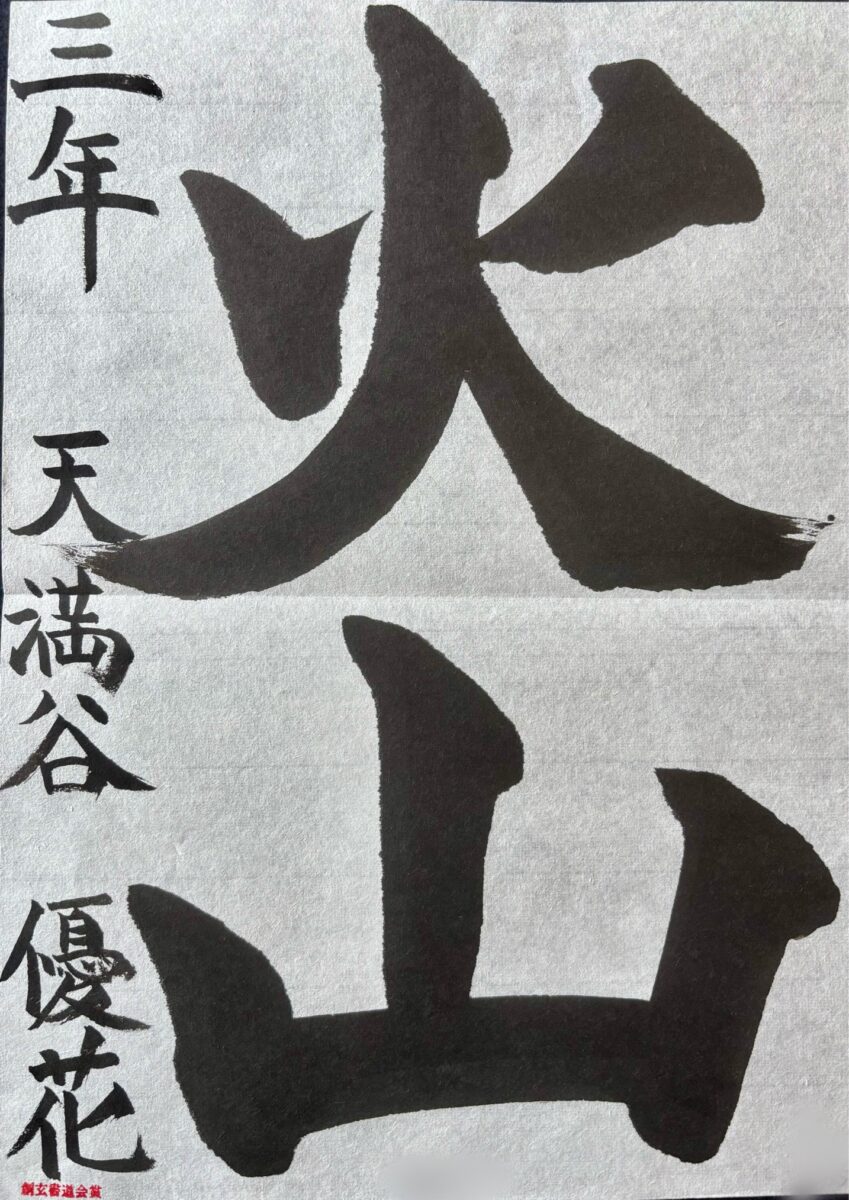 火山
三年 天満谷 優花
創玄書道会賞